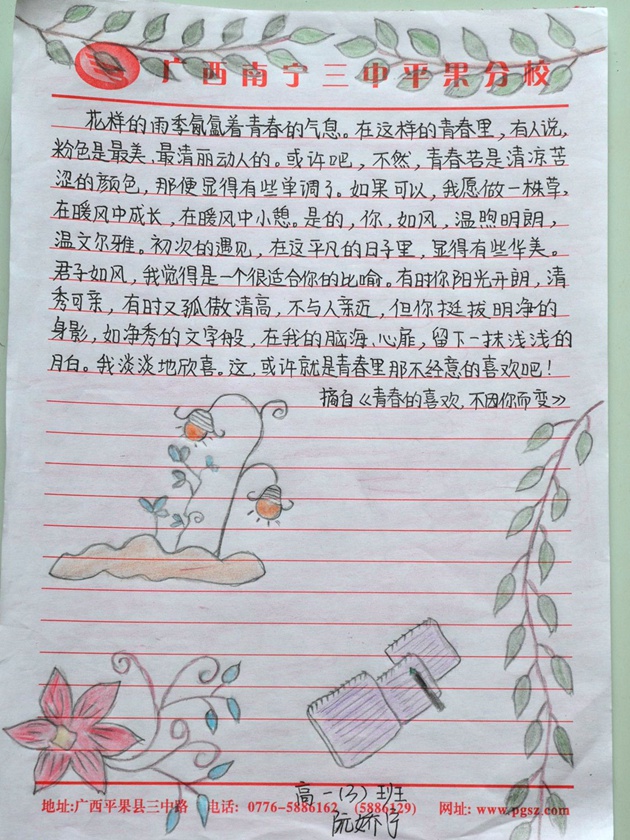 广西南宁三中平果分校
花样的雨季氤氲着青春的气息。在这样的青春里,有人说,
粉色是最美、最清丽动人的。或许吧,不然,青春若是清凉苦
涩的颜色,那便显得有些单调了。如果可以,我愿做一株草,
在暖风中成长,在暖风中小憩。是的,你,如风,温煦明朗,
温文尔雅。初次的遇见,在这平凡的日子里,显得有些华美。
君子如风,我觉得是一个很适合你的比喻。有时你阳光开朗,清
秀可亲,有时又孤傲清高,不与人亲近,但你挺拔明净的
身影,如净秀的文字般,在我的脑海、心扉,留下一抹浅浅的
月白。我淡淡地欣喜。这,或许就是青春里那不经意的喜欢吧!
摘自《青春的喜欢,不因你而变》
高一(3)班
地址:广西平果县三中路 电话: 0776-5886162 (5886129) 网址: www.pgsz.com
阮娇